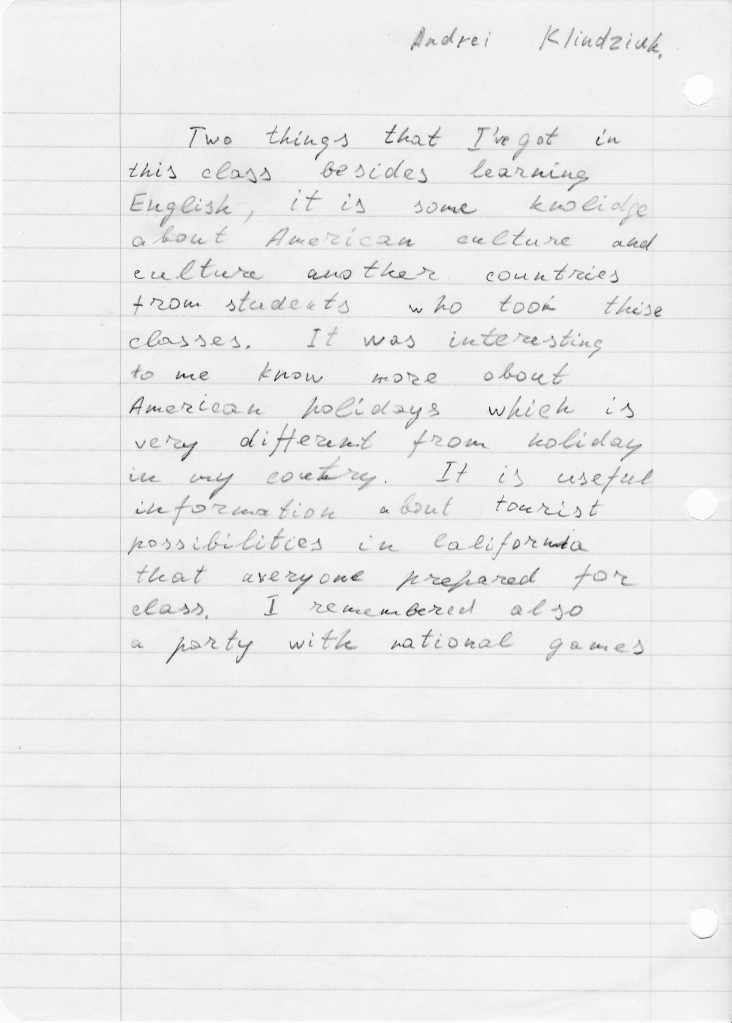 Andrei Klindziuk.
Two things that I've got in
this class besides learning
English, it is some knolidge
about American culture and
culture another countries
from students who took thise
classes. It was interesting
to me know more about
American holidays which is
very different from holiday
in my contry. It is useful
information about tourist
possibilities in California
that averyone prepared for
class. I remembered also
a party with national games